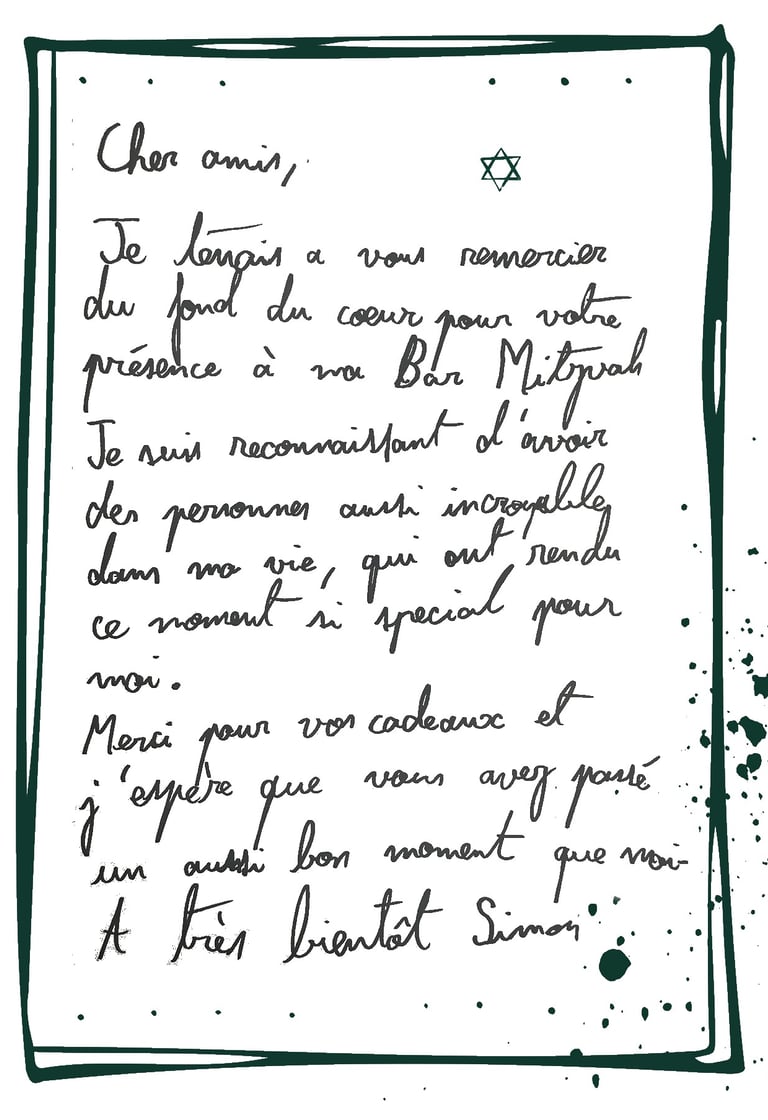 Cher amis,
Je tenais a vous remercier
du fond du coeur pour votre
présence à ma Bar Mitzvah
Je suis reconnaissant d'avoir
des personnes aussi incroyables
dans ma vie, qui ont rendu
ce moment si special pour
moi.
Merci pour vos cadeaux et
j'espère que vous avez passé
un aussi bon moment que moi
A très bientôt Simon